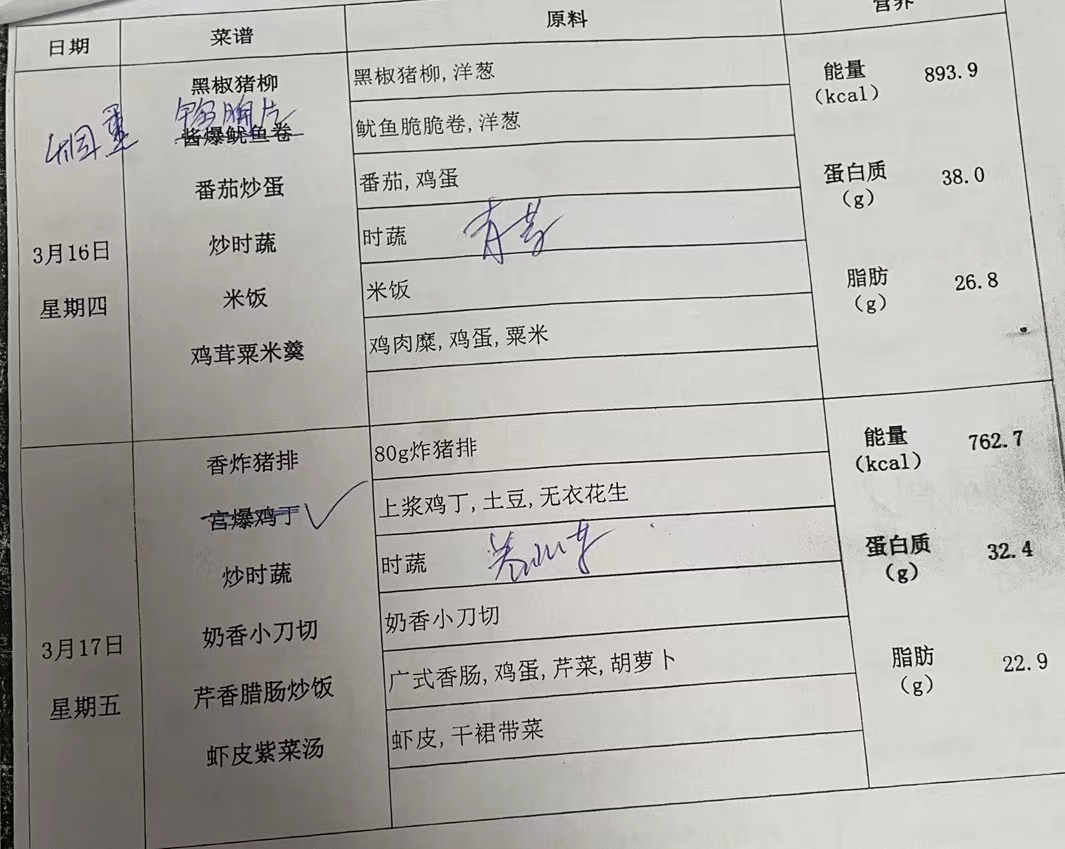 日期 菜谱 原料 营养
黑椒猪柳 黑椒猪柳,洋葱 能量 893.9
(kcal)
酱爆鱿鱼卷 鱿鱼脆脆卷,洋葱
番茄炒蛋 番茄,鸡蛋 蛋白质 38.0
(g)
3月16日 炒时蔬 时蔬
星期四 米饭 米饭 脂肪 26.8
(g)
鸡茸粟米羹 鸡肉糜,鸡蛋,粟米
香炸猪排 80g炸猪排 能量 762.7
(kcal)
宫爆鸡丁 上浆鸡丁,土豆,无衣花生
炒时蔬 时蔬 蛋白质 32.4
(g)
3月17日 奶香小刀切 奶香小刀切
星期五 芹香腊肠炒饭 广式香肠,鸡蛋,芹菜,胡萝卜 脂肪 22.9
(g)
虾皮紫菜汤 虾皮,干裙带菜